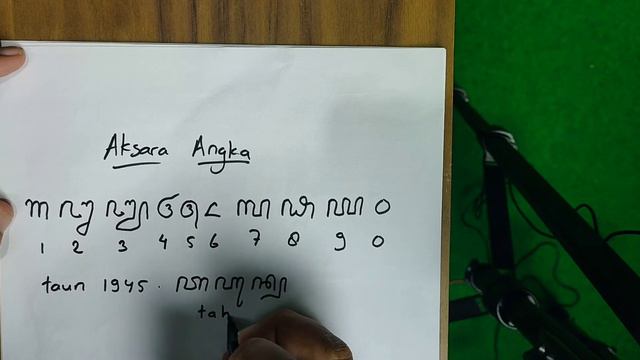 Aksara Angka
꧑ ꧒ ꧓ ꧔ ꧕ ꧖ ꧗ ꧘ ꧙ ꧐
1 2 3 4 5 6 7 8 9 0
taun 1945 .
tah